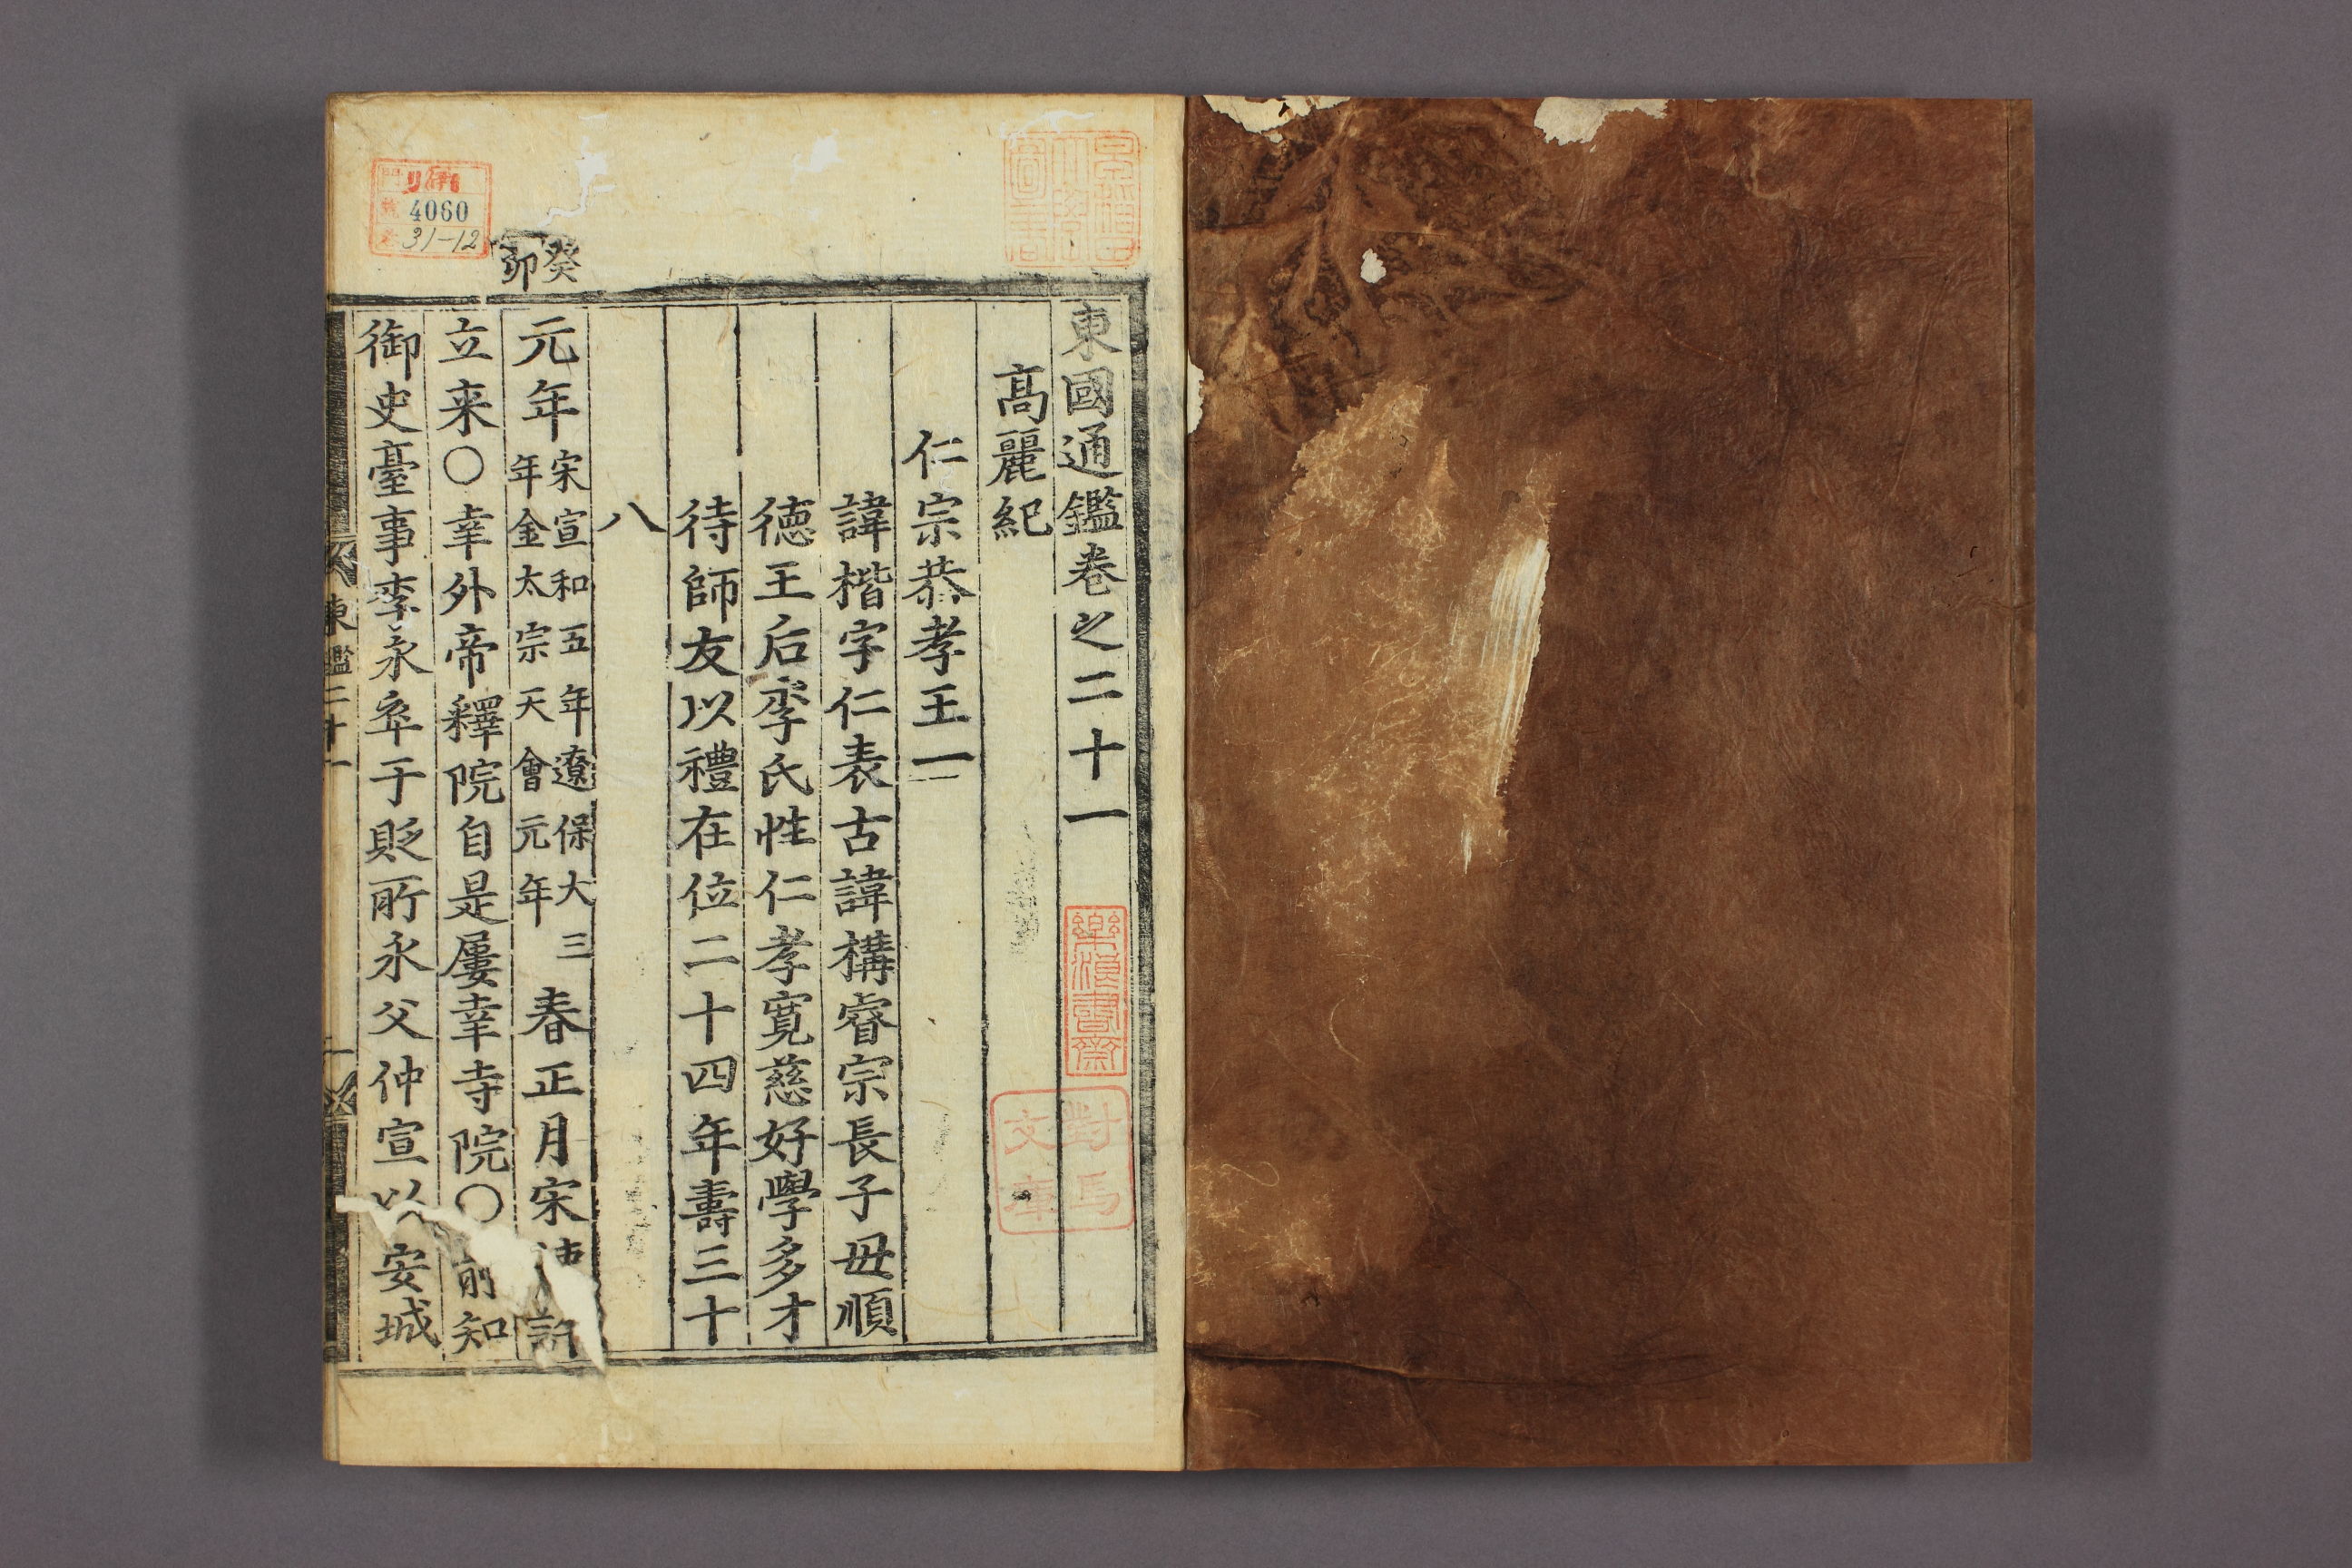 東國通鑑卷之二十一
高麗紀
仁宗恭孝王一
諱楷字仁表古諱構睿宗長子母順
德王后李氏性仁孝寬慈好學多才
待師友以禮在位二十四年壽三十
八
癸卯
元年宋宣和五年遼保大三年金太宗天會元年春正月宋使許
立来〇幸外帝釋院自是屢幸寺院〇前知
御史臺事李永卒于貶所永父仲宣以安城
東鑑二十一
一
4060
31-12
樂浪書齋
對馬文庫